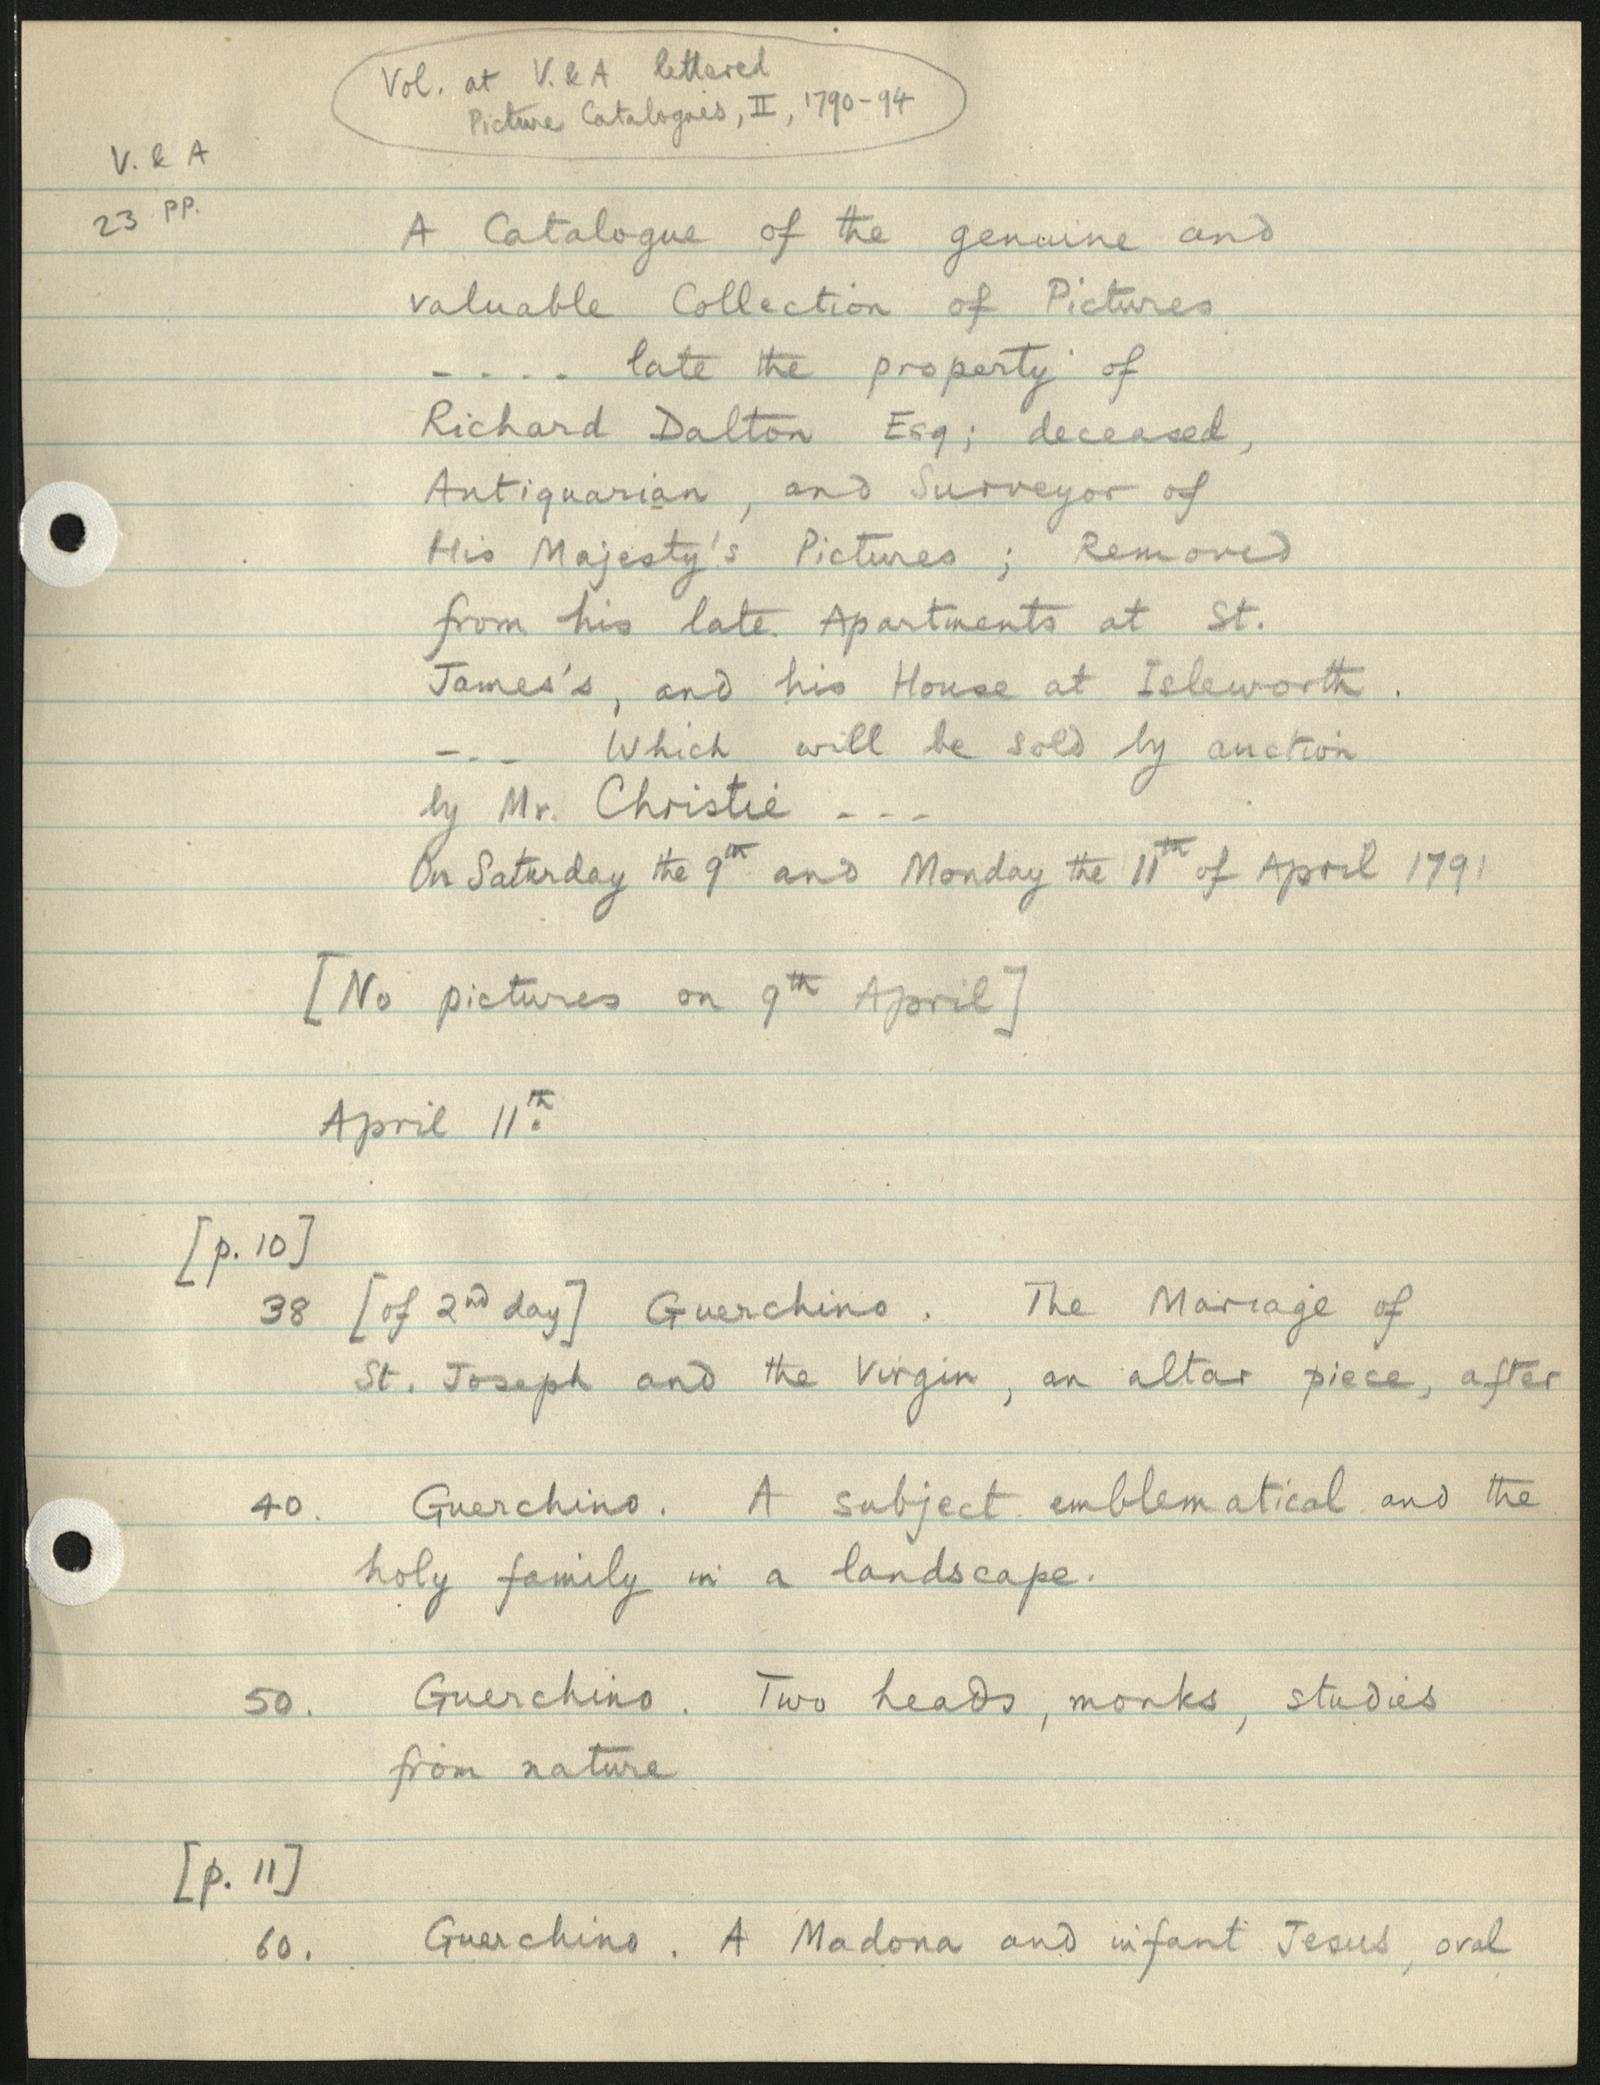 Vol. at V. & A lettered
Picture Catalogues, II, 1790-94
V. & A
23 pp.
A Catalogue of the genuine and
valuable Collection of Pictures
- - - - late the property of
Richard Dalton Esq; deceased,
Antiquarian, and Surveyor of
His Majesty's Pictures; Removed
from his late Apartments at St.
James's, and his House at Isleworth.
- - - Which will be sold by auction
by Mr. Christie - - -
On Saturday the 9th and Monday the 11th of April 1791
[No pictures on 9th April]
April 11th.
[p. 10]
38 [of 2nd day] Guerchino. The Mariage of
St. Joseph and the Virgin, an altar piece, after
40. Guerchino. A subject emblematical and the
holy family in a landscape.
50. Guerchino. Two heads, monks, studies
from nature
[p. 11]
60. Guerchino. A Madona and infant Jesus, oval